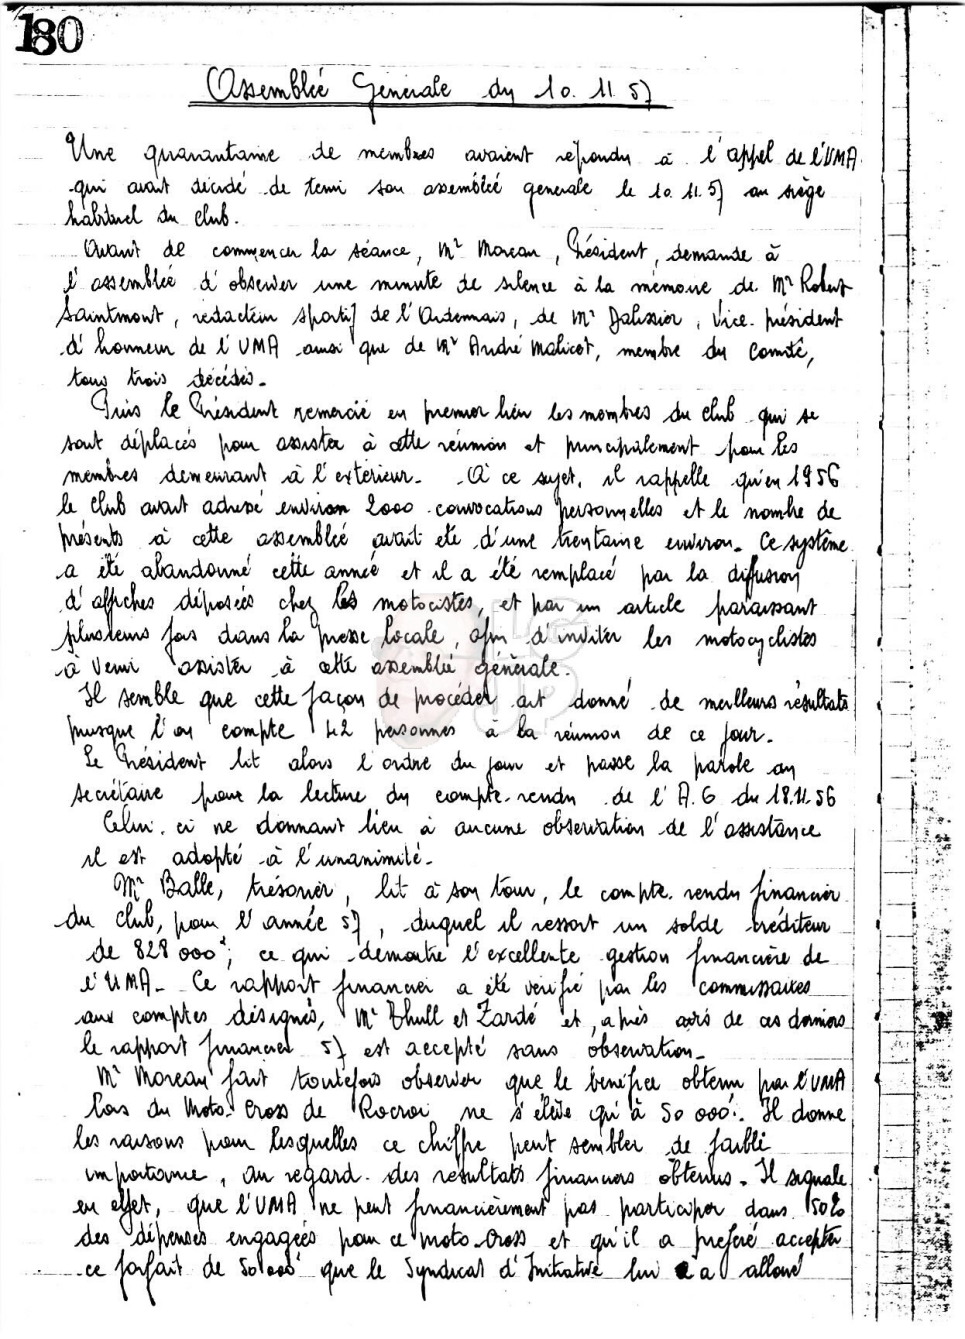 180
Assemblée Générale du 10.11.57
Une quarantaine de membres avaient répondu à l'appel de l'UMA
qui avait décidé de tenir son assemblée générale le 10.11.57 au siège
habituel du club.
Avant de commencer la séance, Mr Moreau, Président, demande à
l'assemblée d'observer une minute de silence à la mémoire de Mr Robert
Saintmont, rédacteur sportif de l'Ardennais, de Mr Dalissier, Vice-président
d'honneur de l'UMA ainsi que de Mr André Malicot, membre du Comité,
tous trois décédés.
Puis le Président remercie en premier lieu les membres du club qui se
sont déplacés pour assister à cette réunion et principalement pour les
membres demeurant à l'extérieur. A ce sujet, il rappelle qu'en 1956
le club avait adressé environ 2000 convocations personnelles et le nombre de
présents à cette assemblée avait été d'une trentaine environ. Ce système
a été abandonné cette année et il a été remplacé par la diffusion
d'affiches déposées chez les motocistes, et par un article paraissant
plusieurs fois dans la presse locale, afin d'inviter les motocyclistes
à venir assister à cette assemblée générale.
Il semble que cette façon de procéder ait donné de meilleurs résultats
puisque l'on compte 42 personnes à la réunion de ce jour.
Le Président lit alors l'ordre du jour et passe la parole au
secrétaire pour la lecture du compte-rendu de l'A.G du 18.11.56
Celui-ci ne donnant lieu à aucune observation de l'assistance
il est adopté à l'unanimité.
Mr Balle, trésorier, lit à son tour, le compte-rendu financier
du club, pour l'année 57, duquel il ressort un solde créditeur
de 828 000f; ce qui démontre l'excellente gestion financière de
l'UMA. Ce rapport financier a été vérifié par les commissaires
aux comptes désignés, Mr Thull et Zardé et, après avis de ces derniers
le rapport financier 57 est accepté sans observation.
Mr Moreau fait toutefois observer que le bénéfice obtenu par l'UMA
lors du Moto-Cross de Rocroi ne s'élève qu'à 50 000f. Il donne
les raisons pour lesquelles ce chiffre peut sembler de faible
importance, au regard des résultats financiers obtenus. Il signale
en effet, que l'UMA ne peut financièrement pas participer dans 50%
des dépenses engagées pour ce moto-cross et qu'il a préféré accepter
ce forfait de 50 000f que le Syndicat d'Initiative lui a alloué